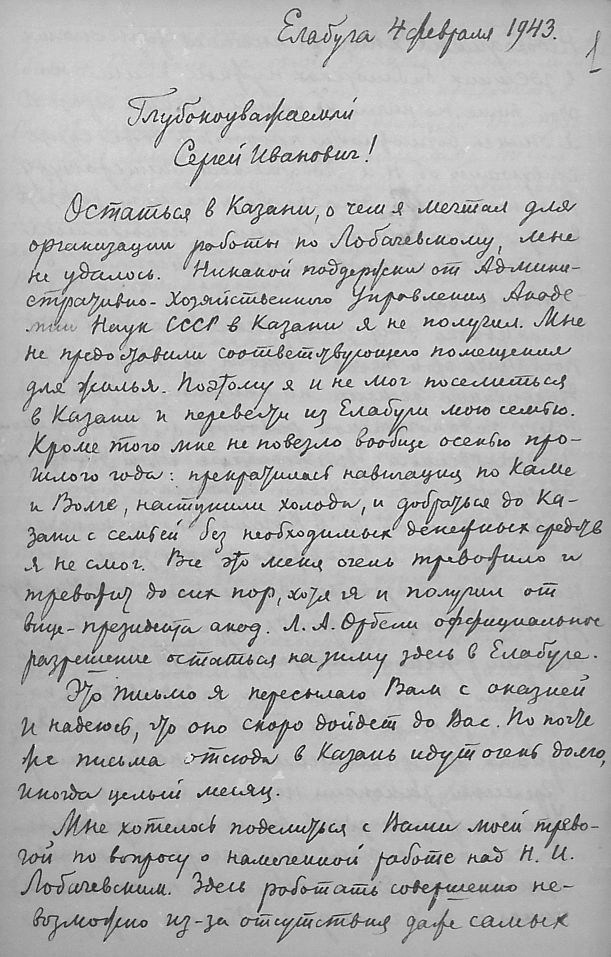 Елабуга 4 февраля 1943.
1
Глубокоуважаемый
Сергей Иванович!
Остаться в Казани, о чем я мечтал для
организации работы по Лобачевскому, мне
не удалось. Никакой поддержки от Админи-
стративно-Хозяйственного Управления Акаде-
мии Наук СССР в Казани я не получил. Мне
не предоставили соответствующего помещения
для жилья. Поэтому я и не мог поселиться
в Казани и перевезти из Елабуги мою семью.
Кроме того мне не повезло вообще осенью про-
шлого года: прекратилась навигация по Каме
и Волге, наступили холода, и добраться до Ка-
зани с семьей без необходимых денежных средств
я не смог. Все это меня очень тревожило и
тревожит до сих пор, хотя я и получил от
вице-президента акад. Л. А. Орбели оффициальное
разрешение остаться на зиму здесь в Елабуге.
Это письмо я пересылаю Вам с оказией
и надеюсь, что оно скоро дойдет до Вас. По почте
же письма отсюда в Казань идут очень долго,
иногда целый месяц.
Мне хотелось поделиться с Вами моей трево-
гой по вопросу о намеченной работе над Н. И.
Лобачевским. Здесь работать совершенно не-
возможно из-за отсутствия даже самых